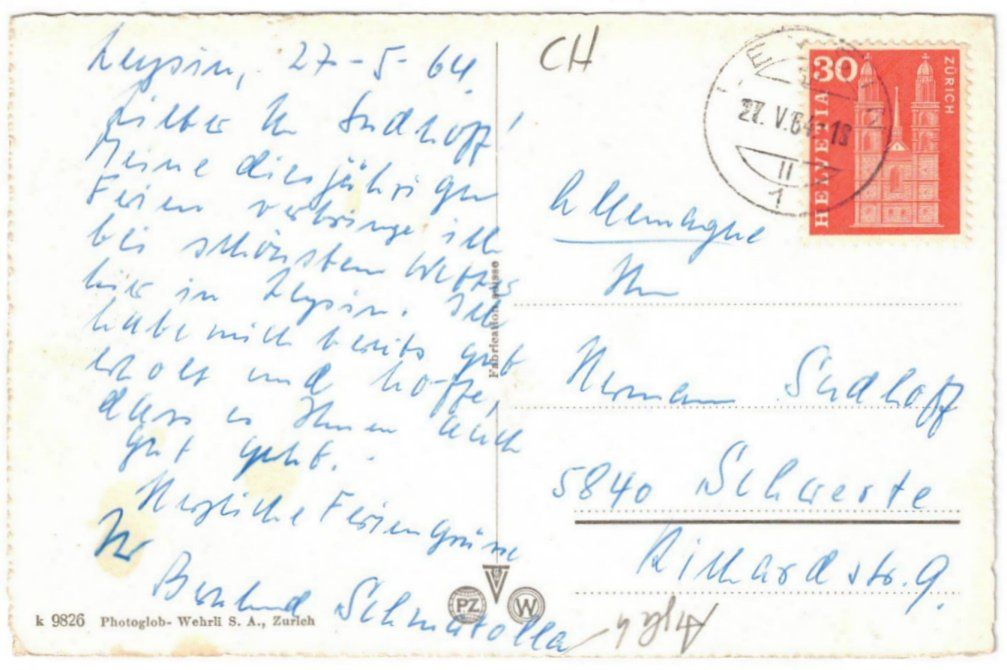 Leysin, 27-5-64.
Lieber Hr Sudhoff!
Meine diesjährigen
Ferien verbringe ich
bei schönstem Wetter
hier in Leysin. Ich
habe mich bereits gut
erholt und hoffe,
dass es Ihnen auch
gut geht.
Herzliche Feriengrüsse
Ihr
Bernhard Schmatolla
k 9826 Photoglob-Wehrli S. A., Zurich
Fabrication suisse
PZ W
CH
LEYSIN
27. V. 64-18
1
30
HELVETIA
ZÜRICH
Allemagne
Hrn
Hermann Sudhoff
5840 Schwerte
Richardstr. 9.